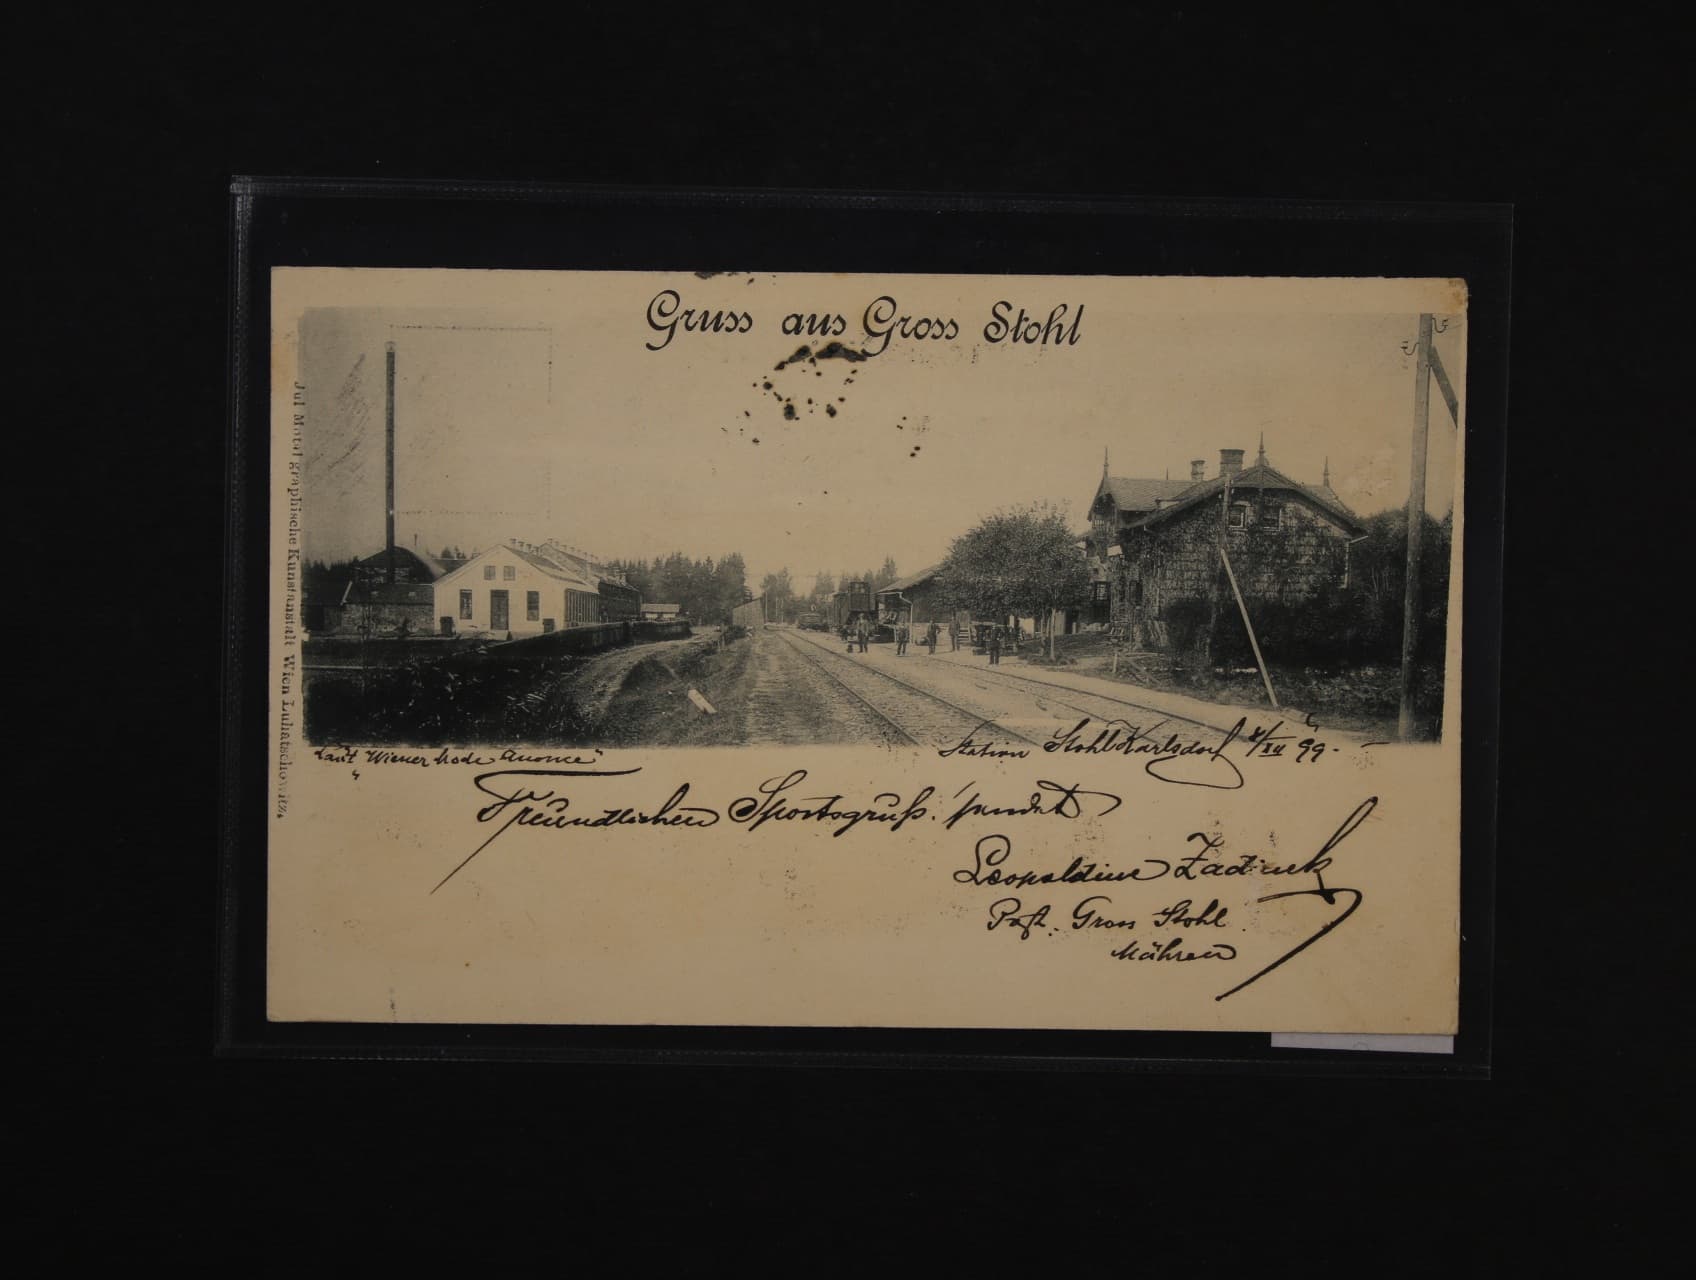 Gruss aus Gross Stohl
Jul Motal graphische Kunstanstalt Wien Luhatschowitz.
Laut "Wiener Mode Anonce"
Station Stohl Karlsdorf /XII 99.
Freundlichen Sportsgruß! sendet
Leopoldine
Post. Gross Stohl
Mähren